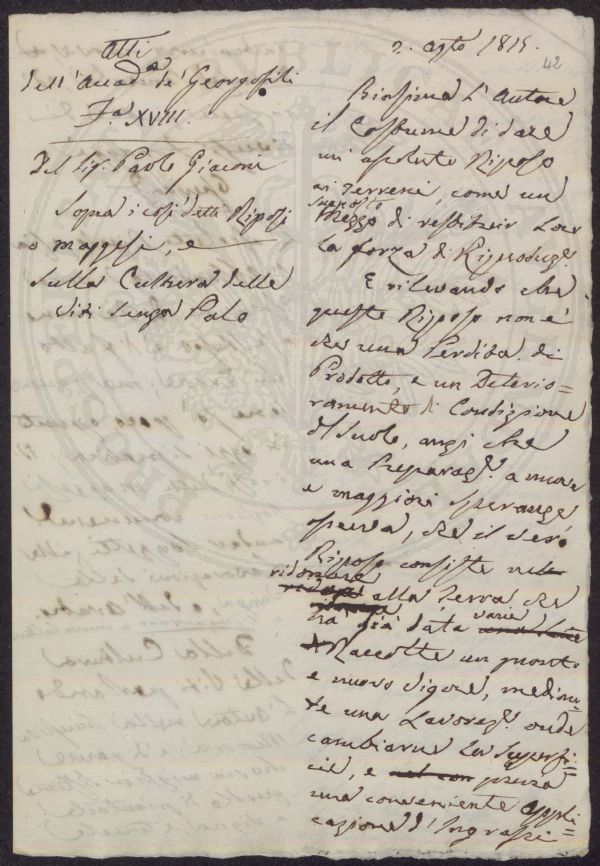 Atti
dell'Accad.a de' Georgofili
F.a XVIII.
Del Sig. Paolo Giaconi
Sopra i così detti Riposi
o maggesi, e
sulla Cultura delle
Viti senza Palo
2. agto 1815.
42
Biasima L'Autore
il Costume di dare
un assoluto Riposo
ai terreni, come un
supposto
Mezzo di restituir Loro
la forza di Riproduz.e
E rilevando che
questo Riposo non è
che una Perdita di
Prodotto, e un Deterio=
ramento di Condizione
di Suolo, anzi che
una Preparaz.e a nuove
e maggiori speranze
osserva, che il vero
Riposo consiste nel
ridonare
alla terra che
ha già data varie
Raccolte un pronto
e nuovo vigore, median=
te una Lavoraz.e onde
cambiarne la superfi=
cie, e
una conveniente appli=
cazione d'Ingrassi=